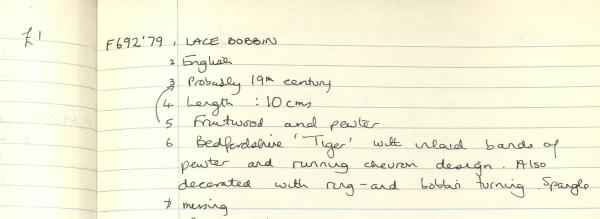 £1
F692'79, LACE BOBBIN
2 English
3 Probably 19th century
4 Length : 10 cms
5 Fruitwood and pewter
6 Bedfordshire 'Tiger' with inlaid bands of
pewter and running chevron design. Also
decorated with ring-and bobbin turning Spangle
7 missing